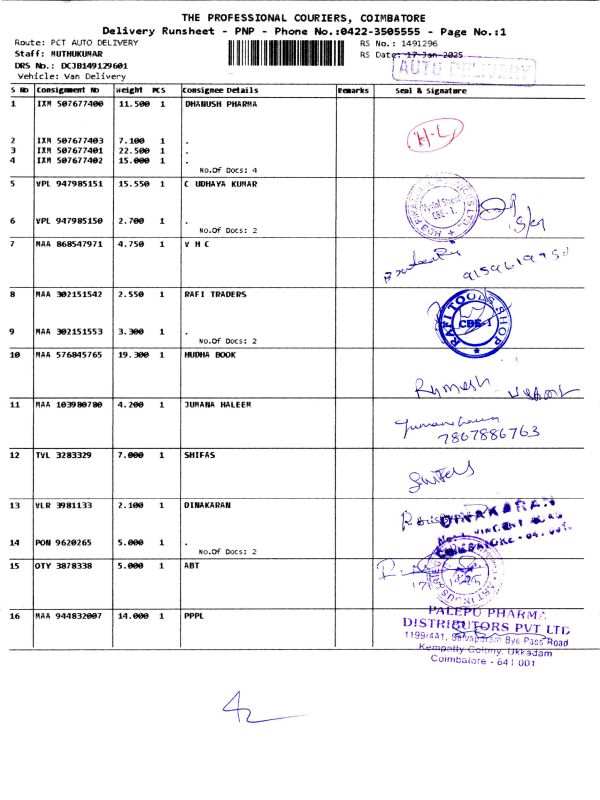 THE PROFESSIONAL COURIERS, COIMBATORE
Delivery Runsheet - PNP - Phone No.:0422-3505555 - Page No.:1
Route: PCT AUTO DELIVERY
RS No.: 1491296
Staff: MUTHUKUMAR
RS Date: 17-Jan-2025
DRS No.: DCJB149129601
AUTO DELIVERY
Vehicle: Van Delivery
S No Consignment No Weight PCS Consignee Details Remarks Seal & Signature
1 IXM 507677400 11.500 1 DHANUSH PHARMA
H-L
2 IXM 507677403 7.100 1 .
3 IXM 507677401 22.500 1 .
4 IXM 507677402 15.000 1 .
No.Of Docs: 4
5 VPL 947985151 15.550 1 C UDHAYA KUMAR
CBE-1.
6 VPL 947985150 2.700 1 .
No.Of Docs: 2
7 MAA 868547971 4.750 1 V H C
8 MAA 302151542 2.550 1 RAFI TRADERS
RAFI TOOLS SHOP
CBE-1
9 MAA 302151553 3.300 1 .
No.Of Docs: 2
10 MAA 576845765 19.300 1 HUDHA BOOK
11 MAA 103980780 4.200 1 JUMANA HALEEM
7867886763
12 TVL 3283329 7.000 1 SHIFAS
13 VLR 3981133 2.100 1 DINAKARAN
DINAKARAN
14 PON 9620265 5.000 1 .
No.Of Docs: 2
15 OTY 3878338 5.000 1 ABT
16 MAA 944832007 14.000 1 PPPL
PALEPU PHARMA
DISTRIBUTORS PVT LTD
1199/4A1, Bye Pass Road
Kempatty Colony, Ukkadam
Coimbatore - 641 001